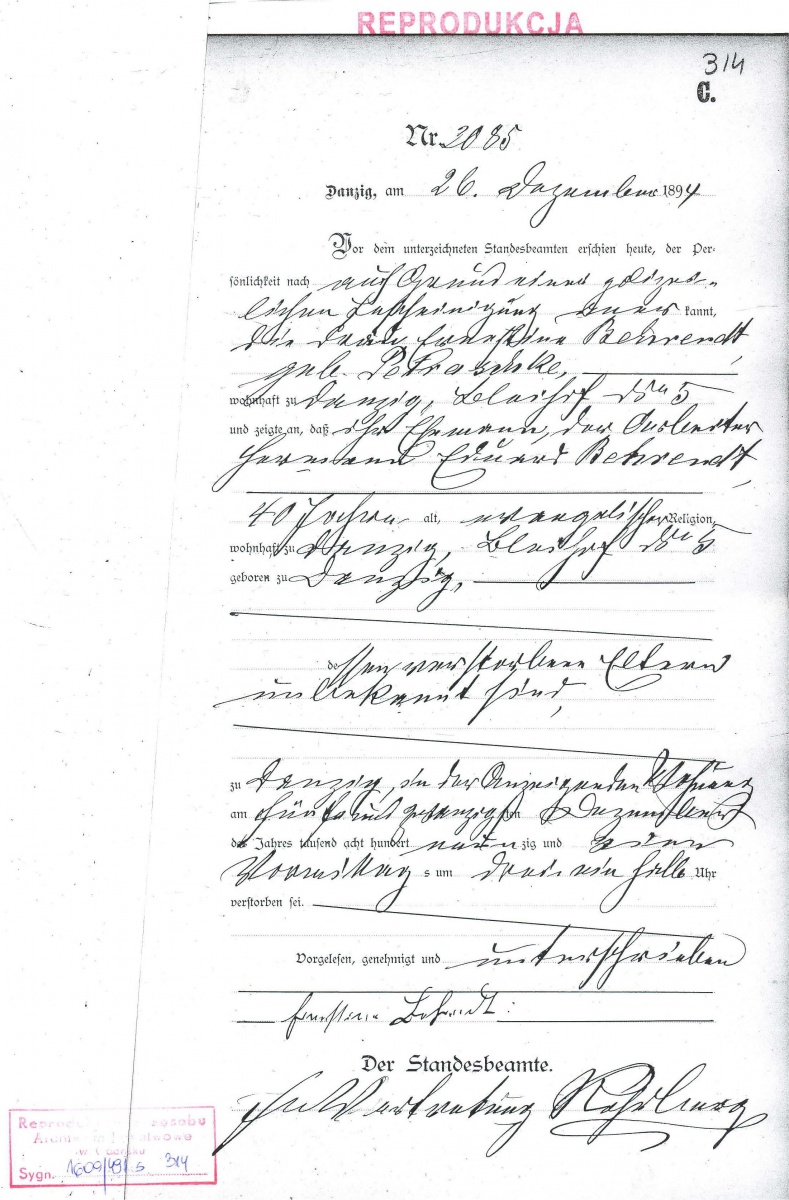 REPRODUKCJA
314
C.
Nr. 2085
Danzig, am 26. Dezember 1894
Vor dem unterzeichneten Standesbeamten erschien heute, der Per-
sönlichkeit nach auf Grund einer polizei-
lichen Bescheinigung aner kannt,
die Frau Ernestine Behrendt,
geb. Petraschke,
wohnhaft zu Danzig, Bleihof No 5
und zeigte an, daß ihr Ehemann, der Arbeiter
Hermann Eduard Behrendt,
40 Jahre alt, evangelischer Religion,
wohnhaft zu Danzig, Bleihof No 5
geboren zu Danzig,
dessen verstorbene Eltern
unbekannt sind,
zu Danzig, in der Anzeigenden Wohnung
am fünfundzwanzigsten Dezember
des Jahres tausend acht hundert neunzig und vier
Vormittags um drei ein halb Uhr
verstorben sei.
Vorgelesen, genehmigt und unterschrieben
Ernstine Behrendt.
Der Standesbeamte.
In Vertretung
Sygn. 1609/491 s 314